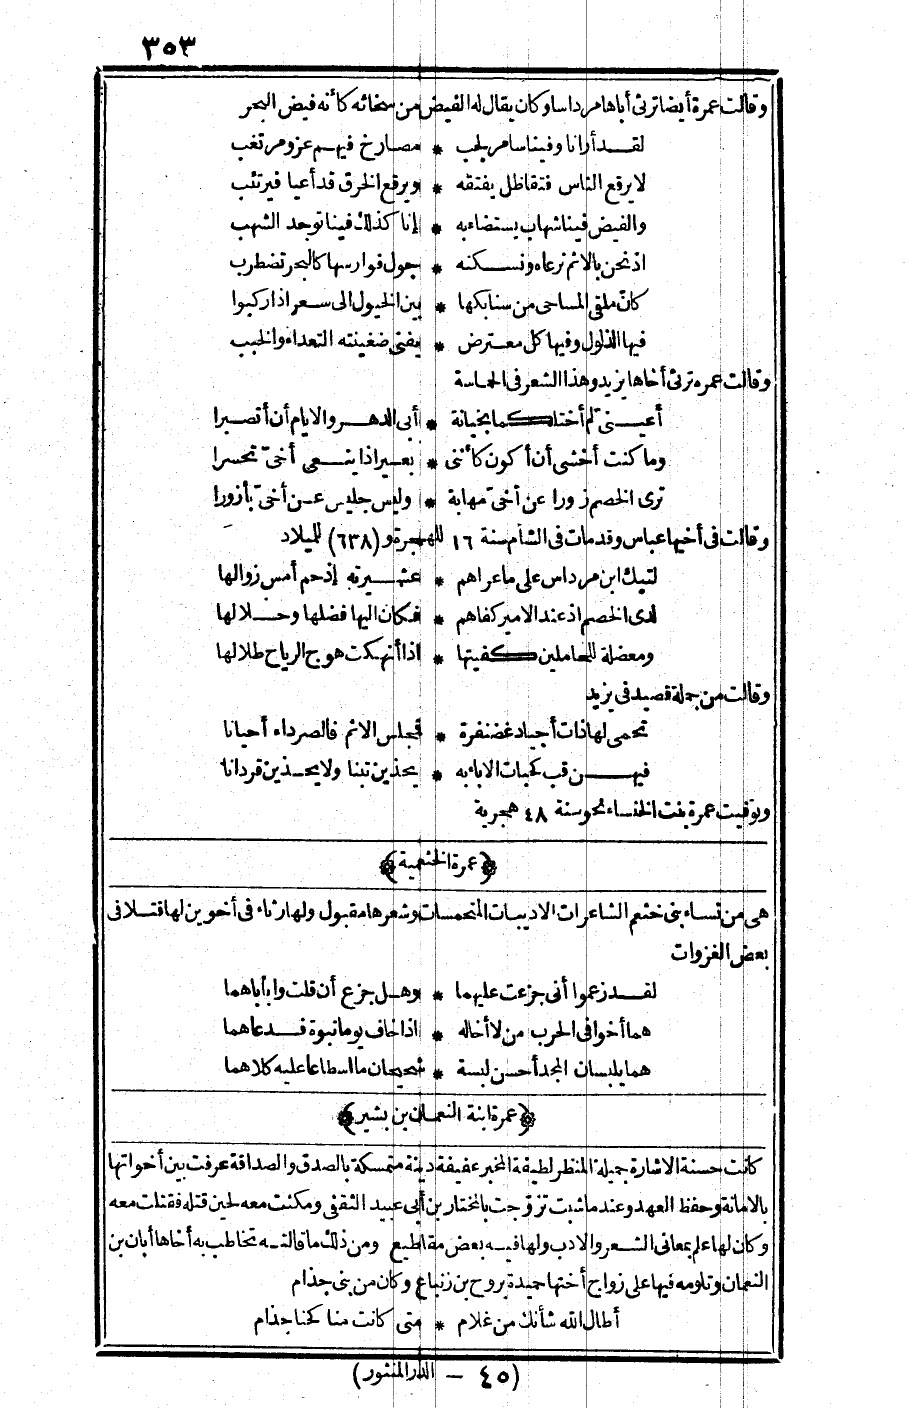 ٣٥٣
وقالت عمرة أيضا ترثى أباها مرداسا وكان يقال له الفيض من سخائه كأنه فيض البحر
لقد أرانا وفينا سامر لجب * مصارخ فيهم عز ومرتغب
لا يرقع الناس فتقا ظل يفتقه * ويرقع الخرق قد أعيا فيرتئب
والفيض فينا شهاب يستضاء به * إنا كذلك فينا توجد الشهب
اذ نحن بالاثم نرعاه ونسكنه * جول فوارسها كالبحر تضطرب
كان ملقى المساحى من سنابكها * بين الخيول الى سعر اذا ركبوا
فيها الذلول وفيها كل معترض * يفنى ضغينته التعداء والخبب
وقالت عمره ترثى أخاها يزيد وهذا الشعر فى الحماسة
أعينى لم أختلكما بخيانة * أبى الدهر والايام أن أتصبرا
وما كنت أخشى أن أكون كأننى * بعير اذا ينعى أخى تحسرا
ترى الخصم زورا عن أخى مهابة * وليس جليس عن أخى بأزورا
وقالت فى أخيها عباس وقدمات فى الشأم سنة ١٦ للهجرة و (٦٣٨) للميلاد
لتبك ابن مرداس على ما عراهم * عشيرته إذ حم أمس زوالها
لدى الخصم اذ عند الامير كفاهم * فكان اليها فضلها وحلالها
ومعضلة للحاملين كفيتها * اذا أنهكت هوج الرياح طلالها
وقالت من جملة قصيد فى يزيد
تحمى لها ذات أجياد غضنفرة * فمجلس الاثم فالصرداء أحيانا
فيهن قب كحبات الاباء به * يحذين تبنا ولا يحذين قردانا
وتوفيت عمرة بنت الخنساء نحو سنة ٤٨ هجرية
﴿عمرة الخثعمية﴾
هى من نساء بنى خثعم الشاعرات الاديبات المتحمسات وشعرها مقبول ولها رثاء فى أخوين لها قتلا فى
بعض الغزوات
لقد زعموا أنى جزعت عليهما * وهل جزع أن قلت وابأباهما
هما أخوا فى الحرب من لا أخاله * اذا خاف يوما نبوة فدعاهما
هما يلبسان المجد أحسن لبسة * شحيحان ما اسطاعا عليه كلاهما
﴿عمرة ابنة النعمان بن بشير﴾
كانت حسنة الاشارة جميلة المنظر لطيفة المخبر عفيفة دينة متمسكة بالصدق والصداقة عرفت بين أخواتها
بالامانة وحفظ العهد وعند ما شبت تزوجت بالمختار بن أبى عبيد الثقفى ومكثت معه لحين قتله فقتلت معه
وكان لها علم بمعانى الشعر والادب ولها فيه بعض مقاطيع ومن ذلك ما قالته تخاطب به أخاها أبان بن
النعمان وتلومه فيها على زواج أختها حميدة بروح بن زنباع وكان من بنى جذام
أطال الله شأنك من غلام * متى كانت منا كحنا جذام
(٤٥ - الدر المنثور)